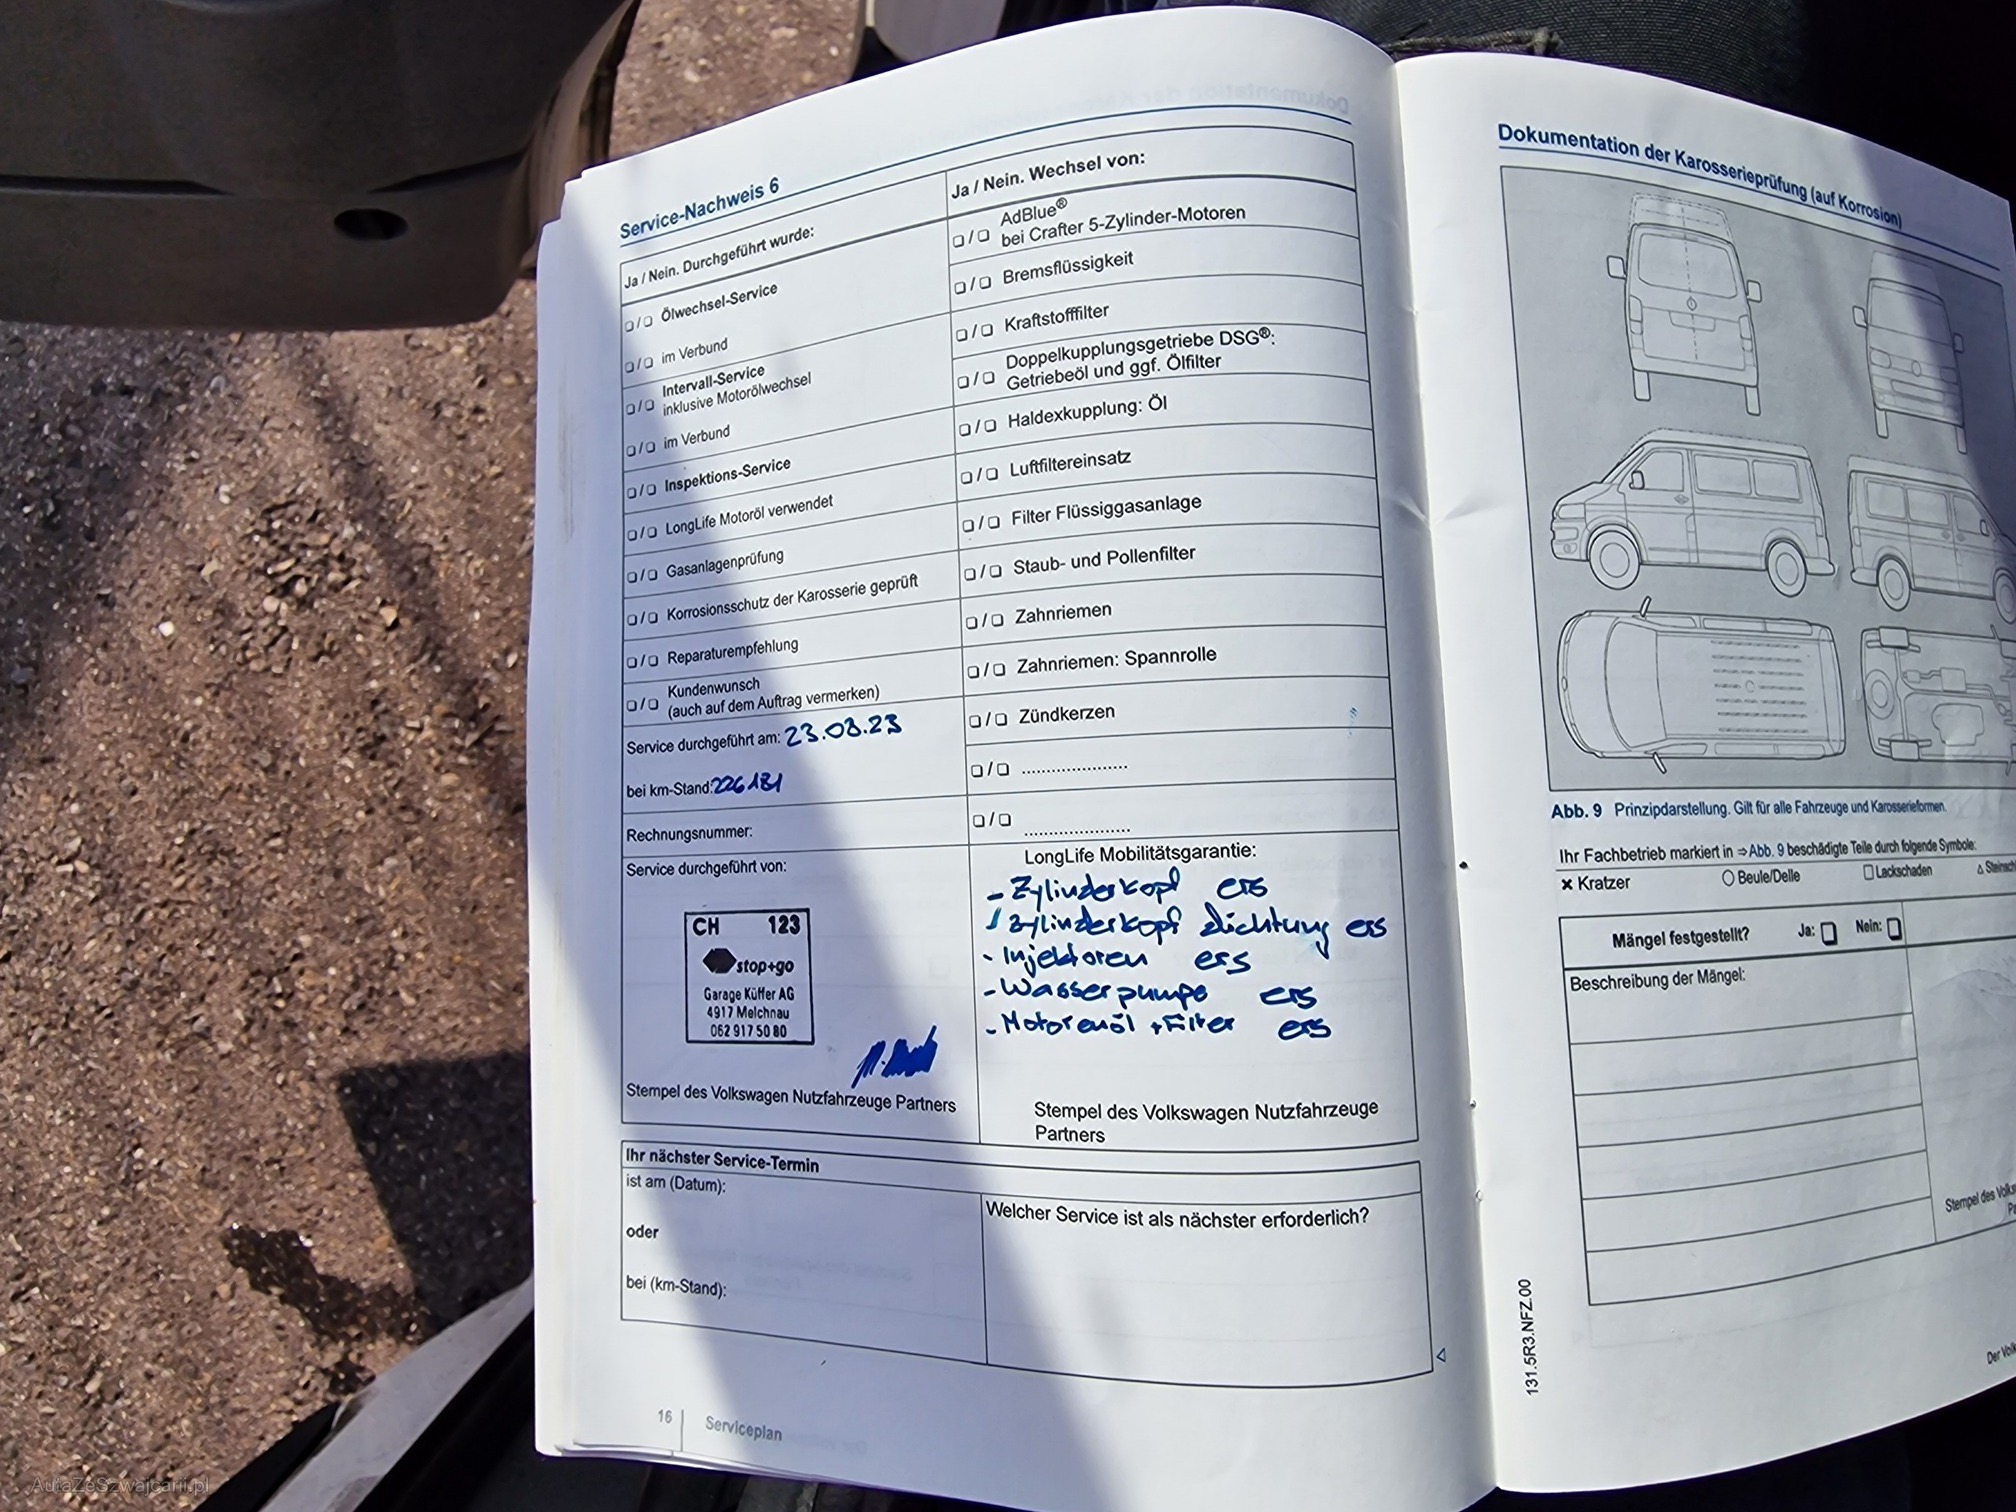 Service-Nachweis 6
Ja / Nein. Durchgeführt wurde:
❑ / ❑ Ölwechsel-Service
❑ / ❑ im Verbund
❑ / ❑ Intervall-Service
inklusive Motorölwechsel
❑ / ❑ im Verbund
❑ / ❑ Inspektions-Service
❑ / ❑ LongLife Motoröl verwendet
❑ / ❑ Gasanlagenprüfung
❑ / ❑ Korrosionsschutz der Karosserie geprüft
❑ / ❑ Reparaturempfehlung
❑ / ❑ Kundenwunsch
(auch auf dem Auftrag vermerken)
Service durchgeführt am: 23.03.23
bei km-Stand: 226181
Rechnungsnummer:
Service durchgeführt von:
CH 123
stop+go
Garage Küffer AG
4917 Melchnau
062 917 50 80
Stempel des Volkswagen Nutzfahrzeuge Partners
Ja / Nein. Wechsel von:
❑ / ❑ AdBlue®
bei Crafter 5-Zylinder-Motoren
❑ / ❑ Bremsflüssigkeit
❑ / ❑ Kraftstofffilter
❑ / ❑ Doppelkupplungsgetriebe DSG®:
Getriebeöl und ggf. Ölfilter
❑ / ❑ Haldexkupplung: Öl
❑ / ❑ Luftfiltereinsatz
❑ / ❑ Filter Flüssiggasanlage
❑ / ❑ Staub- und Pollenfilter
❑ / ❑ Zahnriemen
❑ / ❑ Zahnriemen: Spannrolle
❑ / ❑ Zündkerzen
❑ / ❑ .....................
❑ / ❑ .....................
LongLife Mobilitätsgarantie:
- Zylinderkopf ers
- Zylinderkopf dichtung ers
- Injektoren ers
- Wasserpumpe ers
- Motorenöl + Filter ers
Stempel des Volkswagen Nutzfahrzeuge
Partners
Ihr nächster Service-Termin
ist am (Datum):
oder
bei (km-Stand):
Welcher Service ist als nächster erforderlich?
16 | Serviceplan
Dokumentation der Karosserieprüfung (auf Korrosion)
Abb. 9 Prinzipdarstellung. Gilt für alle Fahrzeuge und Karosserieformen.
Ihr Fachbetrieb markiert in ⇒ Abb. 9 beschädigte Teile durch folgende Symbole:
✗ Kratzer ○ Beule/Delle ❑ Lackschaden △ Steinsch
Mängel festgestellt? Ja: ❑ Nein: ❑
Beschreibung der Mängel:
Stempel des Volks
131.5R3.NFZ.00
Der Volk
AutaZeSzwajcarii.pl